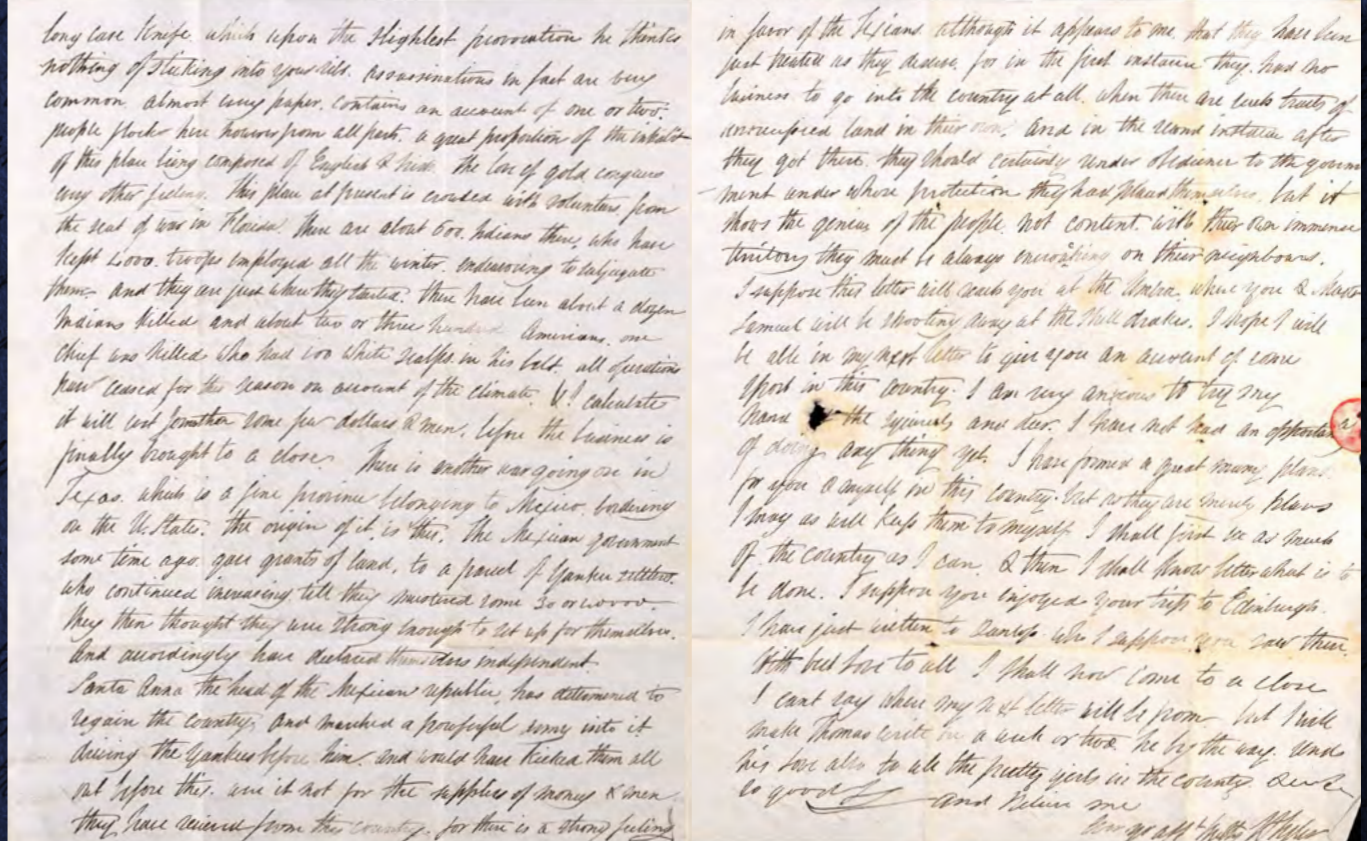 long case Knife, which upon the slightest provocation he thinks
nothing of sticking into your ribs. assassinations in fact are very
common, almost every paper, contains an account of one or two.
people flock here however from all parts, a great proportion of the inhabit
of this place being composed of English & Irish. the love of gold conquers
every other feeling. This place at present is crowded with volunteers from
the seat of war in Florida. There are about 600 Indians there, who have
kept 4000 troops employed all the winter, endeavoring to subjugate
them. and they are just where they started. there have been about a dozen
Indians killed and about two or three hundred Americans. one
chief was killed who had 100 white scalps in his belt. all operations
have ceased for the season on account of the climate. I calculate
it will cost Jonathan some few dollars & men, before the business is
finally brought to a close. There is another war going on in
Texas. which is a fine province belonging to Mexico, bordering
on the U. States. the origin of it, is this. The Mexican government
some time ago, gave grants of land, to a parcel of Yankee settlers.
who continued increasing till they mustered some 30 or
they then thought they were strong enough to set up for themselves.
And accordingly have declared themselves independent
Santa Anna the head of the Mexican republic, has determined to
regain the country, and marched a powerful army into it
driving the Yankees before him, and would have kicked them all
out before this. were it not for the supplies of money & men
they have received from this country. for there is a strong feeling
in favor of the Texians. although it appears to me, that they have been
just treated as they deserve, for in the first instance they had no
business to go into the country at all, when there are such tracts of
unoccupied land in their own, And in the second instance after
they got there, they should certainly render obedience to the govern
ment under whose protection they had placed themselves, but it
shows the genius of the people, not content with their own immense
territory they must be always encroaching on their neighbours.
I suppose this letter will reach you at the where you & Master
Samuel will be shooting away at the drakes. I hope I will
be able in my next letter to give you an account of some
sport in this country. I am very anxious to try my
hand the squirrels and deer. I have not had an opportun
of doing any thing yet. I have formed a great many plans
for you & myself in this country. but as they are merely plans
I may as well keep them to myself. I shall first see as much
of the country as I can, & then I shall know better what is to
be done. I suppose you enjoyed your trip to Edinburgh.
I have just written to Dunlop who I suppose you saw there.
With best love to all I shall now come to a close
I cant say where my next letter will be from, but I will
make Thomas write in a week or two. he by the way, sends
his love also to all the pretty girls in the country
so good and believe me